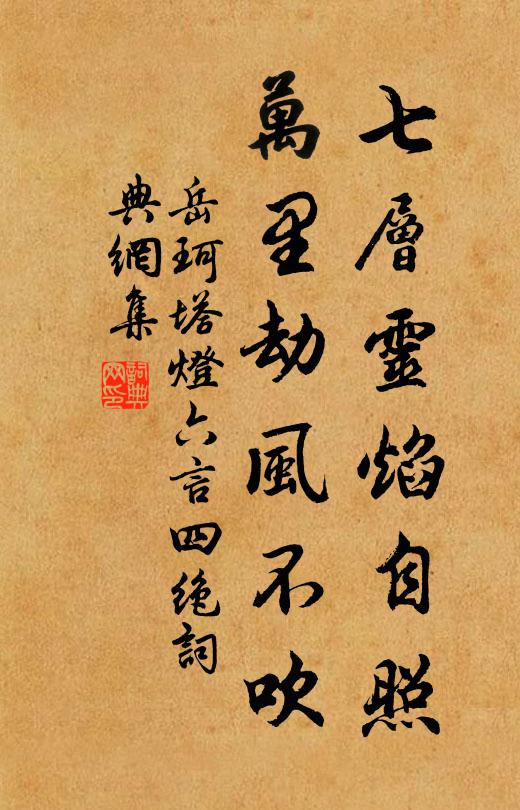 七層靈焰自照
萬里劫風不吹
岳珂塔燈六言四絶詞
典網集
詞典
网印